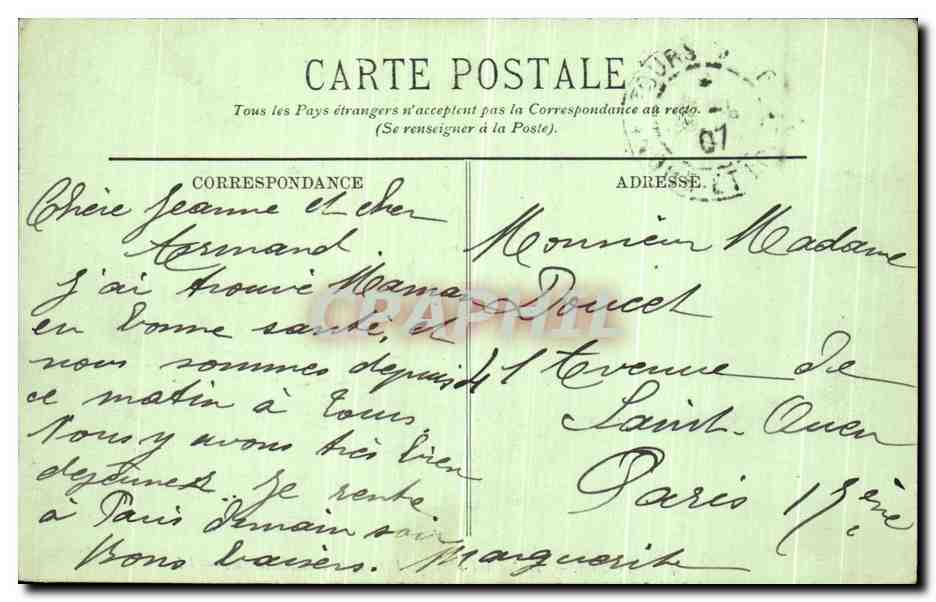 CARTE POSTALE
Tous les Pays étrangers n'acceptent pas la Correspondance au recto.
(Se renseigner à la Poste).
TOURS
07
CORRESPONDANCE
Chère Jeanne et cher
Armand.
J'ai trouvé Maman
en bonne santé, et
nous sommes depuis
ce matin à Tours.
Nous y avons très bien
dejeuner. Je rentre
à Paris demain soir
Bons baisers. Marguerite
ADRESSE
Monsieur Madame
Doucet
41 Avenue de
Saint-Ouen
Paris 17ème
CPAPHIL